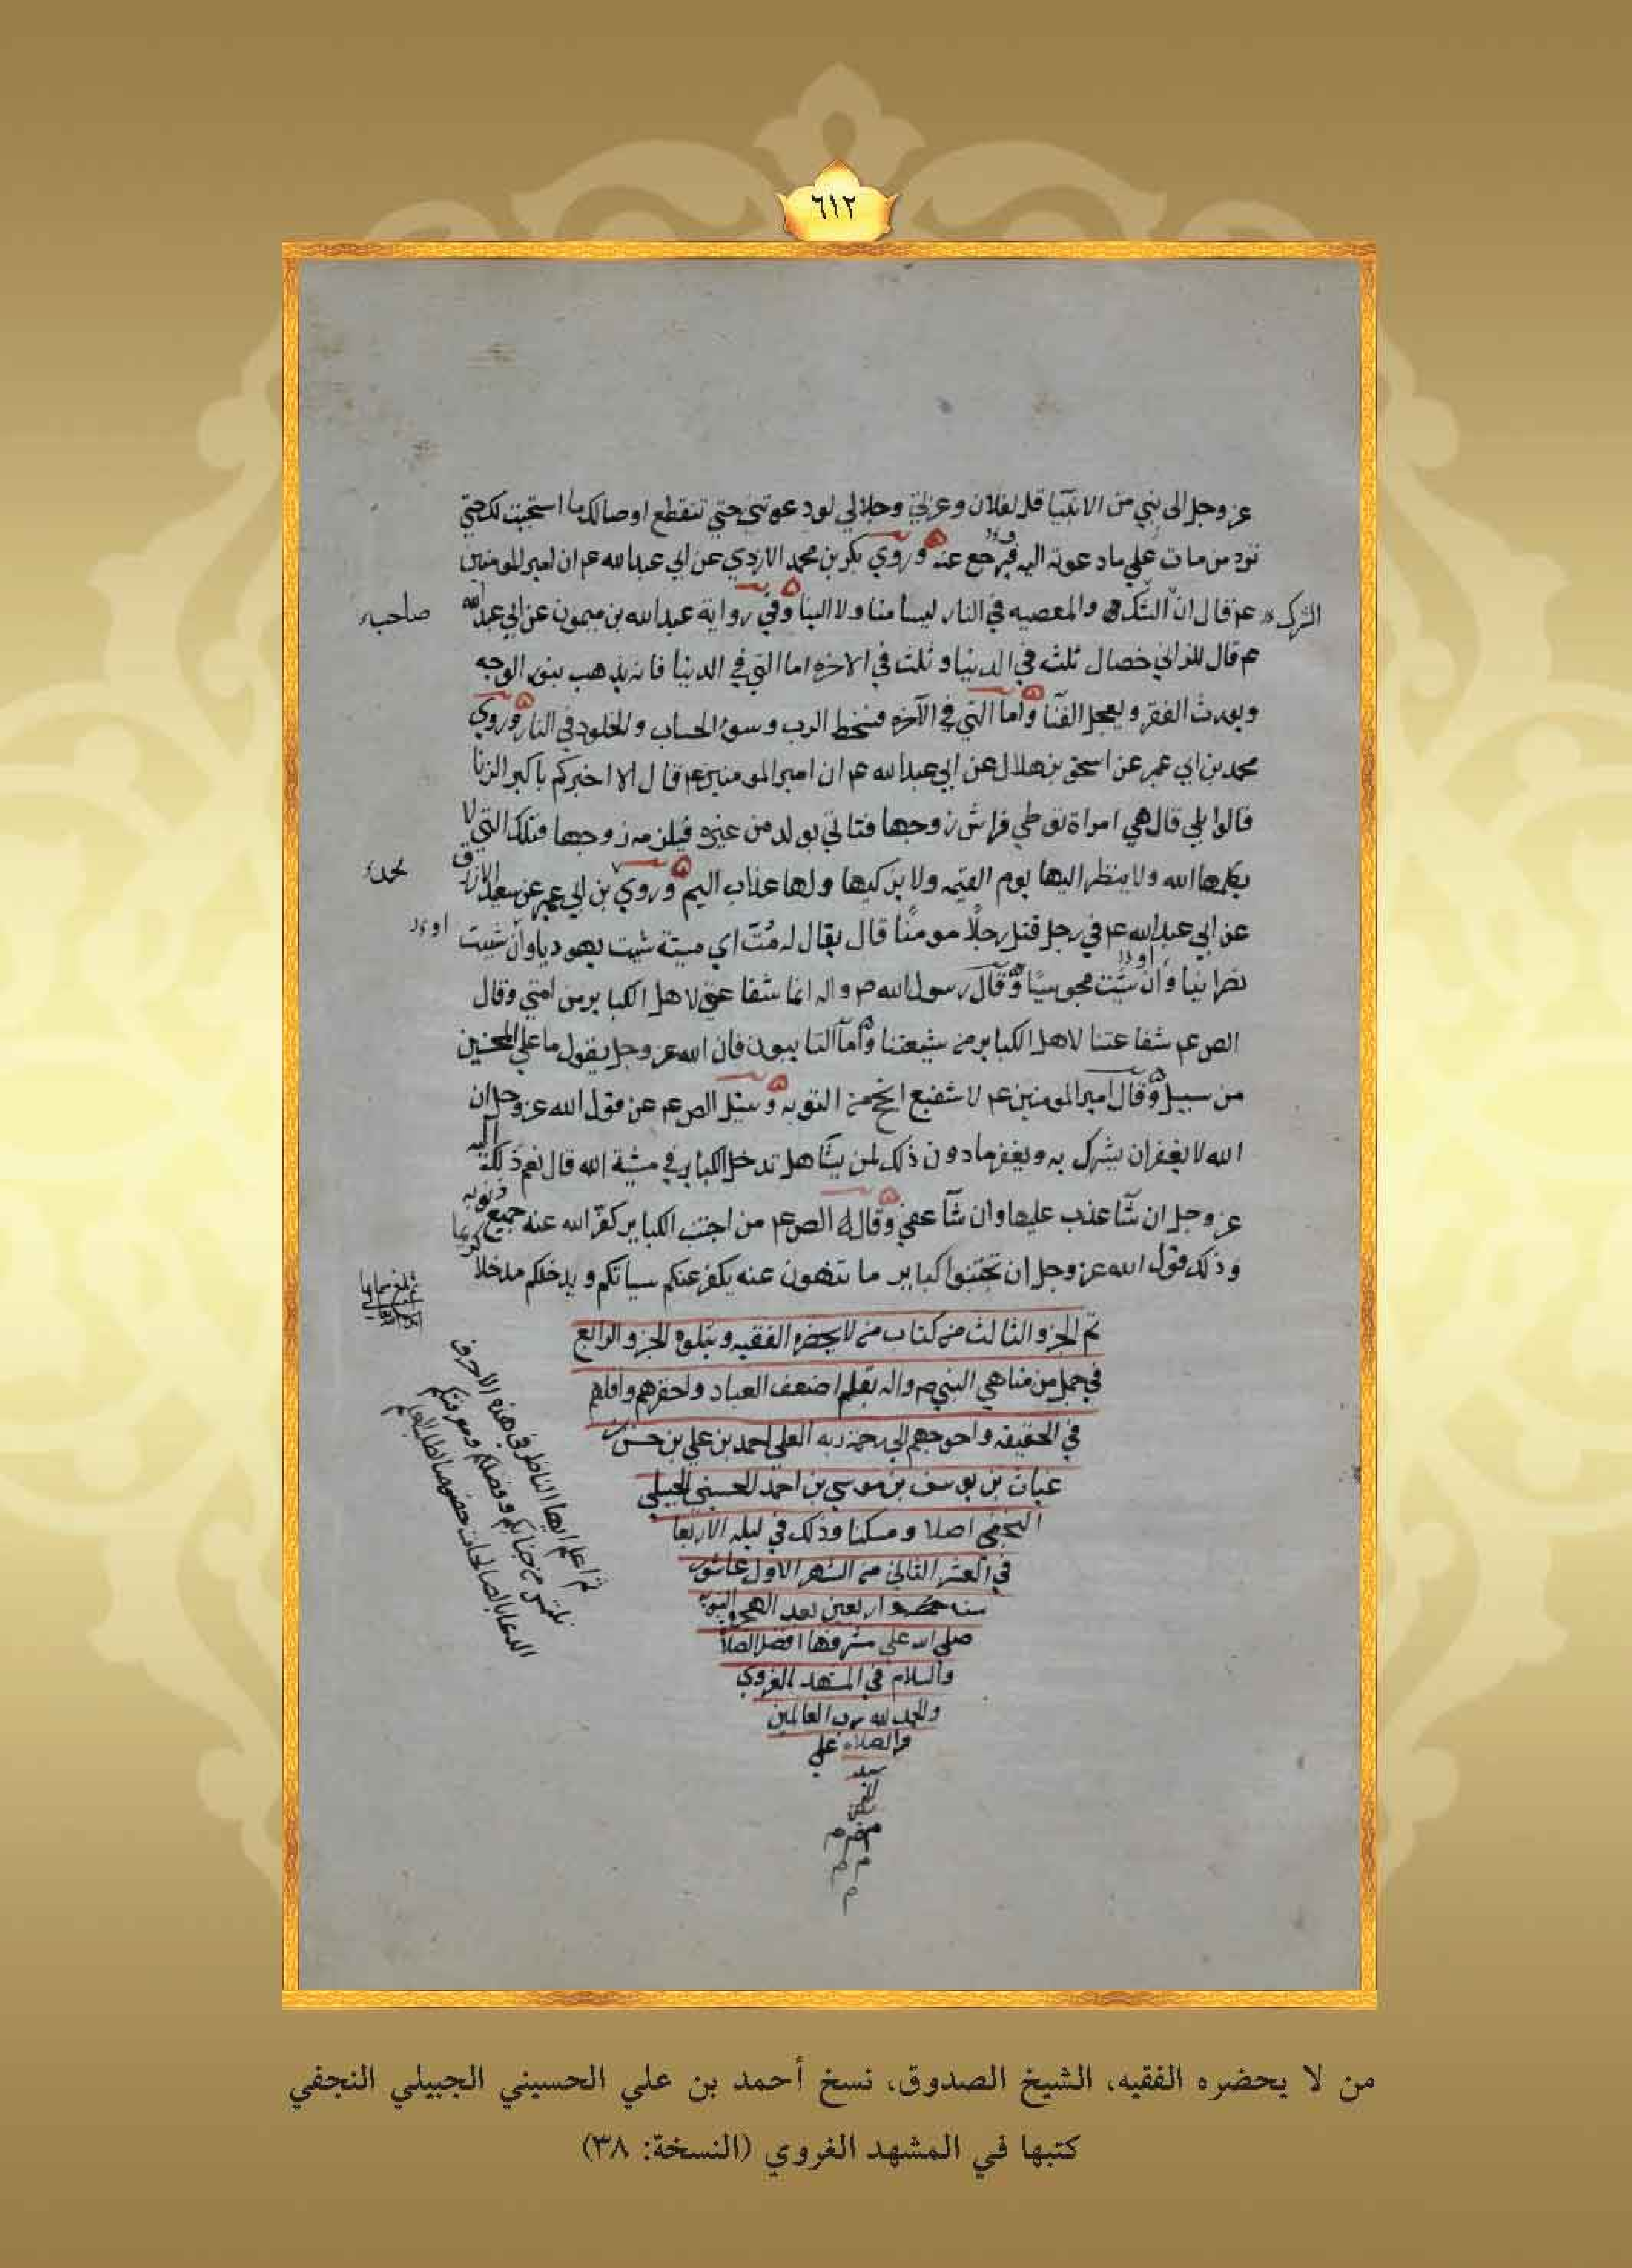 ٦١٢
عز وجل الى نبي من الانبيا قل لفلان وعزتي وجلالي لود عوتني حتي تنقطع اوصالك ما استجبت لك حتي
ترد من مات علي ماد عوته اليه فيرجع عنه وروي بكر بن محمد الازدي عن ابي عبدالله عم ان امير المومنين
الشرك
عم قال ان الشك والمعصيه في النار ليسا منا ولا الينا وفي رواية عبدالله بن ميمون عن ابي عبدالله
عم قال للزاني خصال ثلث في الدنيا و ثلث في الاخرة اما التي في الدنيا فانه يذهب بنور الوجه
ويورث الفقر ويعجل الفنآ واما التي في الآخره فسخط الرب وسوء الحساب والخلود في النار وروي
محمد بن ابي عمير عن اسحق بن هلال عن ابي عبدالله عم ان امير المومنين عم قال الا اخبركم باكبر الزنا
قالوا بلي قال هي امراة توطي فراش زوجها فتاتي بولد من غيره فيلزمه زوجها فتلك التي لا
يكلمها الله ولا ينظر اليها يوم القيمه ولا يزكيها ولها عذاب اليم وروي بن ابي عمير عن سعيد الازرق
محمد
عن ابي عبدالله عم في رجل قتل رجلا مومنا قال يقال له مت اي ميتة شيت يهوديا وان شيت
نصرانيا وان شيت مجوسيا وقال رسول الله ص واله انما شفاعتي لاهل الكباير من امتي وقال
الص عم شفاعتنا لاهل الكباير من شيعتنا واما التايبون فان الله عز وجل يقول ما علي المحسنين
من سبيل وقال امير المومنين عم لا شفيع انجح من التوبه وسئل الص عم عن قول الله عز وجل ان
الله لا يغفر ان يشرك به ويغفر مادون ذلك لمن يشآ هل تدخل الكباير في مشية الله قال نعم ذلك اليه
عز وجل ان شآ عذب عليها وان شآ عفي وقال الص عم من اجتنب الكباير كفر الله عنه جميع ذنوبه
وذلك قول الله عز وجل ان تجتنبوا كباير ما تنهون عنه يكفر عنكم سياتكم ويدخلكم مدخلا كريما
تم الجزو الثالث من كتاب من لا يحضره الفقيه ويتلوه الجزو الرابع
في جمل من مناهي النبي ص واله بقلم اضعف العباد واحقرهم واقلهم
في الحقيقه واحوجهم الي رحمة ربه العلي احمد بن علي بن حسن بن
بن يوسف بن موسي بن احمد الحسيني الجبيلي
النجفي اصلا ومسكنا وذلك في ليله الاربعا
في العشر الثاني من الشهر الاول عاشور
سنه واربعين بعد الهجره النبويه
صلي الله علي مشرفها افضل الصلاة
والسلام في المشهد الغروي
والحمد لله رب العالمين
والصلاه علي
ثم اعلم ايها الناظر في هذه الاحرف
نلتمس من جنابكم وفضلكم ومعرفتكم
الدعا بالصالحات خصوصا
من لا يحضره الفقيه، الشيخ الصدوق، نسخ أحمد بن علي الحسيني الجبيلي النجفي
كتبها في المشهد الغروي (النسخة: ٣٨)